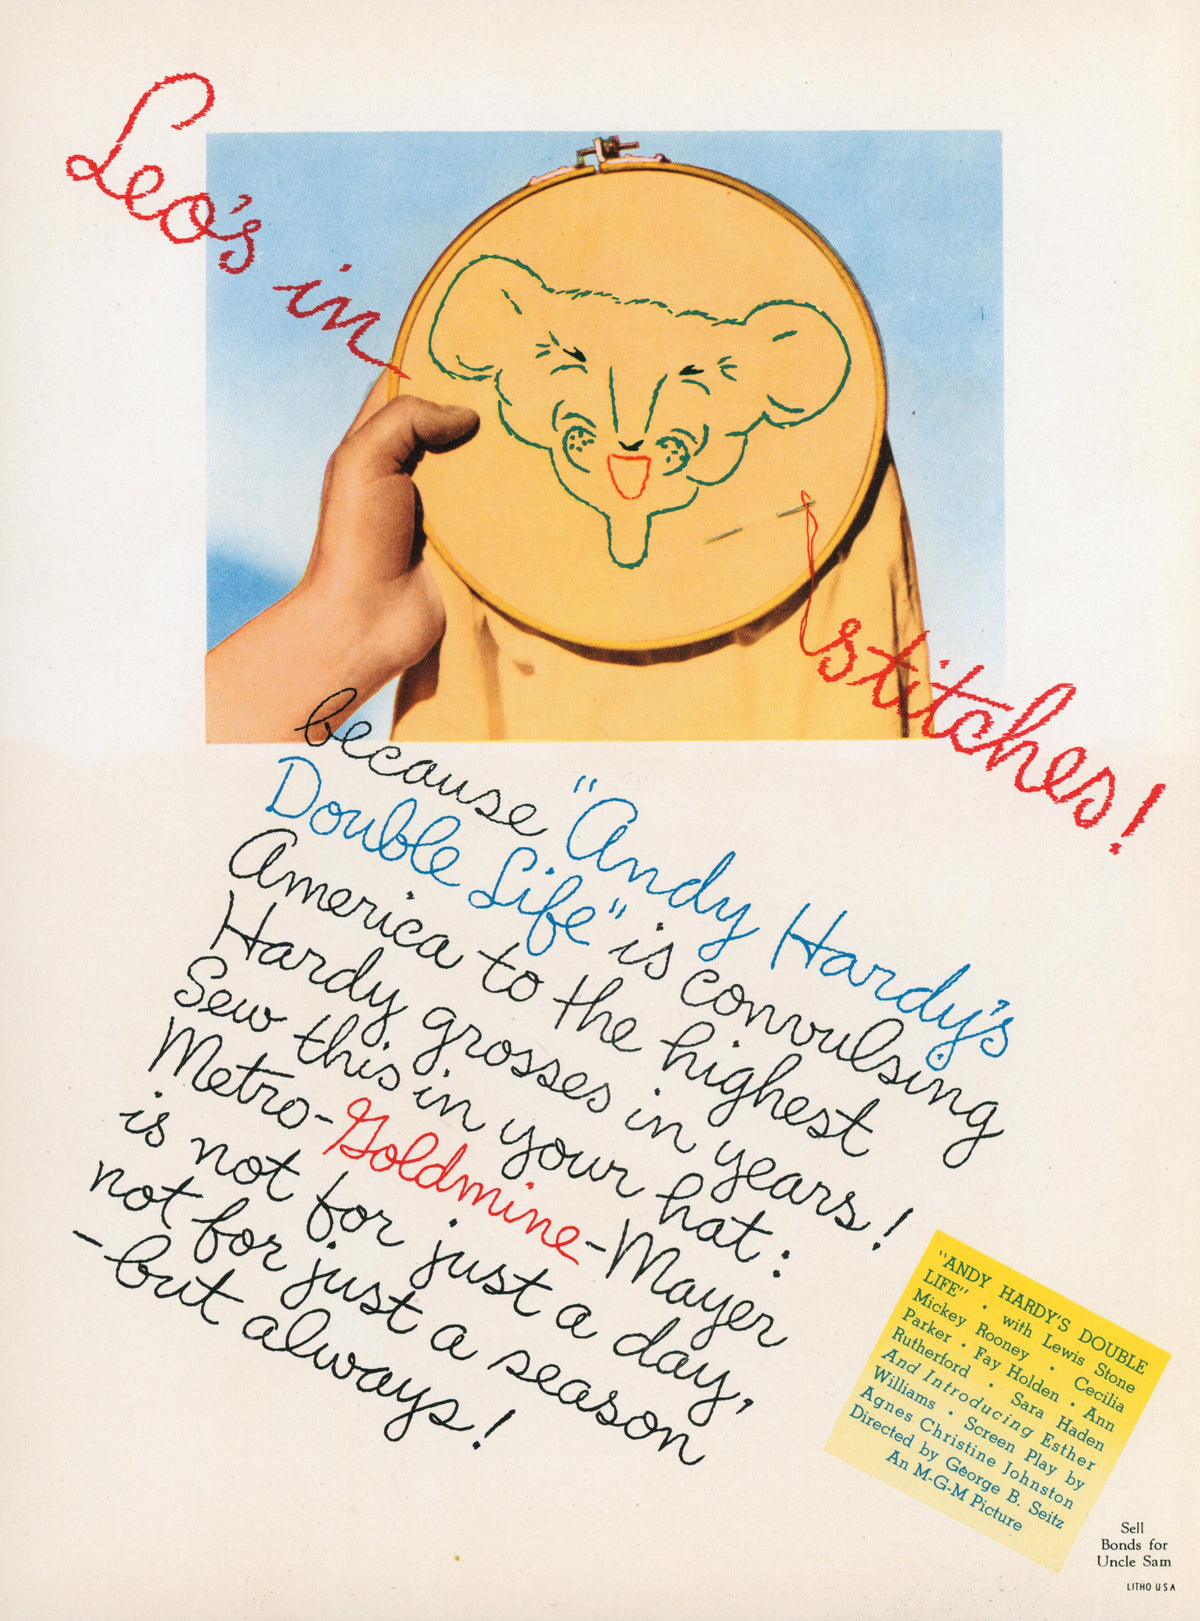 Leo's in
stitches!
because "Andy Hardy's
Double Life" is convulsing
America to the highest
Hardy grosses in years!
Sew this in your hat:
Metro-Goldmine-Mayer
is not for just a day,
not for just a season
-but always!
"ANDY HARDY'S DOUBLE
LIFE" • with Lewis Stone
Mickey Rooney • Cecilia
Parker • Fay Holden • Ann
Rutherford • Sara Haden
And Introducing Esther
Williams • Screen Play by
Agnes Christine Johnston
Directed by George B. Seitz
An M-G-M Picture
Sell
Bonds for
Uncle Sam
LITHO USA